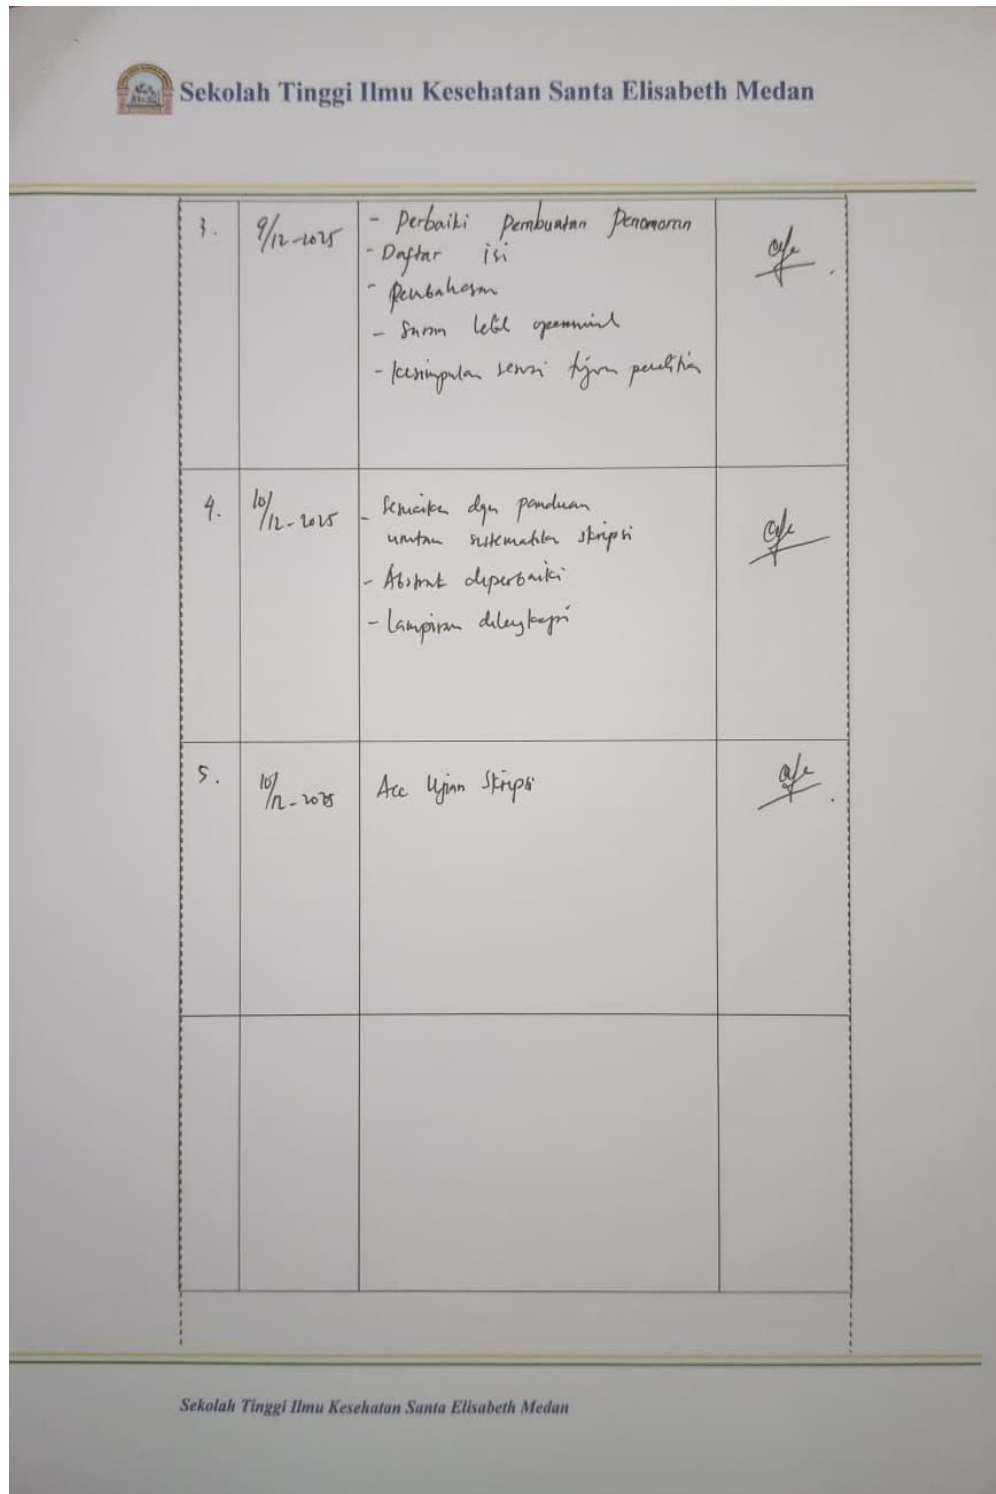 Sekolah Tinggi Ilmu Kesehatan Santa Elisabeth Medan
3.
9/12-2025
- Perbaiki Pembuatan Penomoran
- Daftar isi
- Pembahasan
- Saran lebih operasional
- Kesimpulan sesuai tujuan penelitian
4.
10/12-2025
- Sesuaikan dgn panduan
urutan sistematika skripsi
- Abstrak diperbaiki
- Lampiran dilengkapi
5.
10/12-2025
Acc Ujian Skripsi
Sekolah Tinggi Ilmu Kesehatan Santa Elisabeth Medan